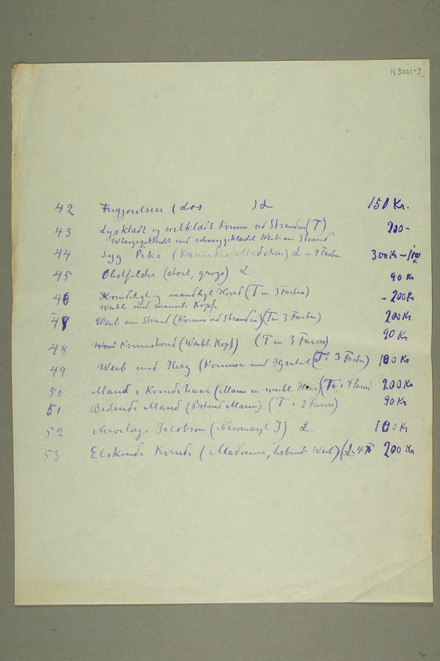 N 3001-3
42 Frigjørelsen (Los ) L 150 Kr.
43 Lysklædt og sortklædt Kvinne ved Stranden (T) 200-
Weissgekleidt und schwarzgekleidet Weib am Strand
44 Syg Pike (Kranke Mädchen) L - 4 Farben 300 Kr - 
45 Obstfelder (stort, gross) L 90 Kr
46 Kvindeligt og mandligt Hoved (T in 3 Farben) - 200 Kr
weibl. und männl. Kopf
47 Weib am Strand (Kvinne ved Stranden) (T in 3 Farben) 200 Kr
48 Kvinnehoved (Weibl Kopf) (T in 3 Farven) 90 Kr
49 Weib und Herz (Kvinnen und Hjertet) (T 3 Farben) 100 Kr
50 Mand i Kvindehaar (Mann in weibl. Haar) (T i 4 Farver) 200 Kr
51 Bedende Mand (Betende Mann) (T i 2 Farver) 90 Kr
52 Jacobson J) L 100 Kr
53 Elskende Kvinde (Madonna, liebende Weib) (L 4 F 200 Kr